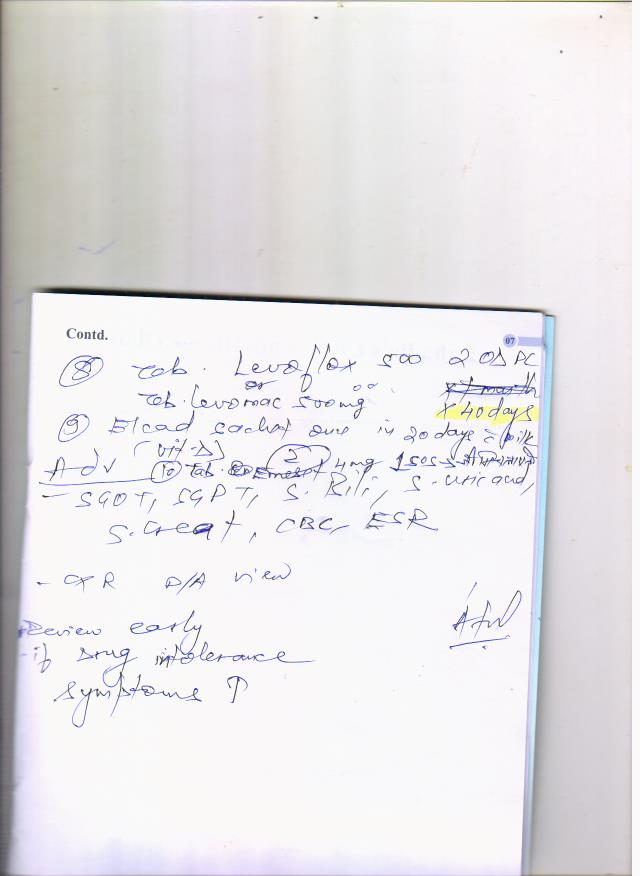 Contd.
07
(8) Tab. Levoflox 500 2 OD PC
or
Tab. Levomac 500mg
x 40 days
(9) sachet once in 20 days c milk
(vit-D)
Adv (10) Tab. Emeset 4mg 1 SOS
- SGOT, SGPT, S. Bili, S. Uric acid,
S. Creat, CBC, ESR
- CXR P/A view
Review early
- if Drug intolerance
symptoms ↑